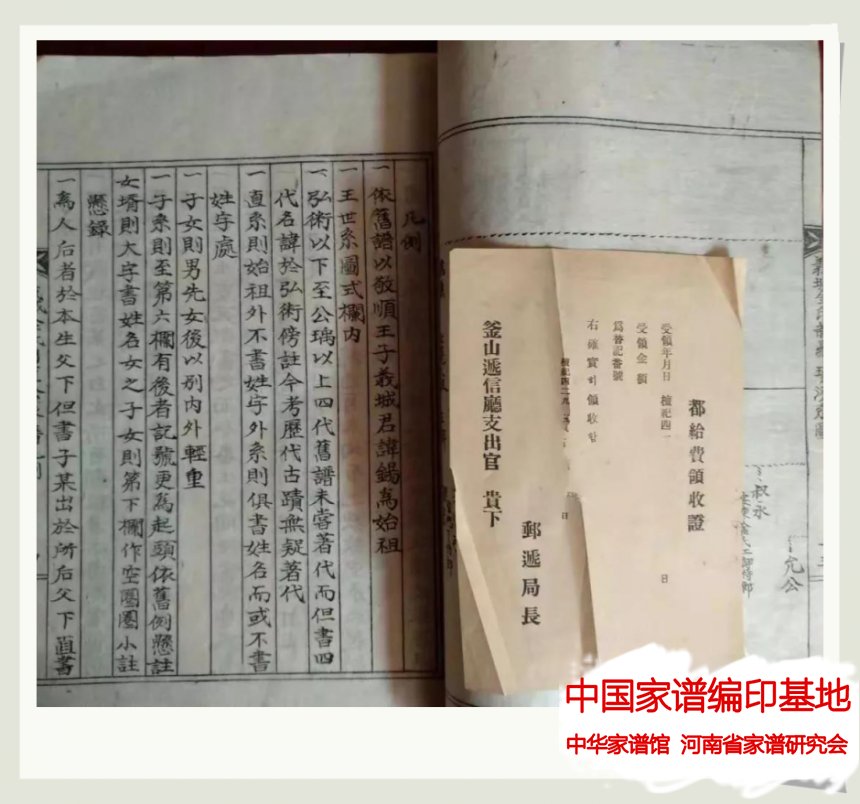 凡例
一依舊譜以敬順王子義城君諱錫爲始祖
一王世系圖式欄內
一弘術以下至公瑀以上四代舊譜未嘗著代而但書四
代名諱於弘術傍註今考歷代古蹟無疑著代
一直系則始祖外不書姓字外系則俱書姓名而或不書
姓字處
一子女則男先女後以別內外輕重
一子系則至第六欄有後者記號更爲起頭依舊例懸註
女壻則大字書姓名女之子女則第下欄作空圈圈小註
懸錄
一爲人后者於本生父下但書子某出於所后父下直書
都給費領收證
受領年月日 檀紀四 日
受領金額
爲替記番號
右確實히領收함
檀紀四二 日
釜山遞信廳支出官 貴下
郵遞局長
叔永
允公
中国家谱编印基地
中华家谱馆 河南省家谱研究会